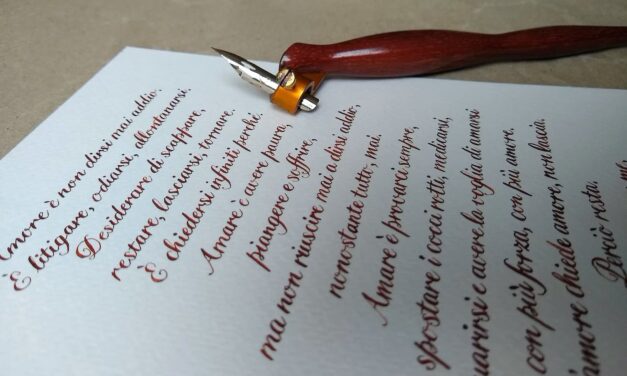 Amore è non dirsi mai addio.
È litigare, odiarsi, allontanarsi.
Desiderare di scappare,
restare, lasciarsi, tornare.
È chiedersi infiniti perché.
Amare è avere paura,
piangere e soffrire,
ma non riuscire mai a dirsi addio,
nonostante tutto, mai.
Amare è provarci sempre,
spostare i cocci rotti, medicarsi,
guarirsi e avere la voglia di amarsi
con più forza, con più amore.
amore chiede amore, non lascia.
Perciò resta.